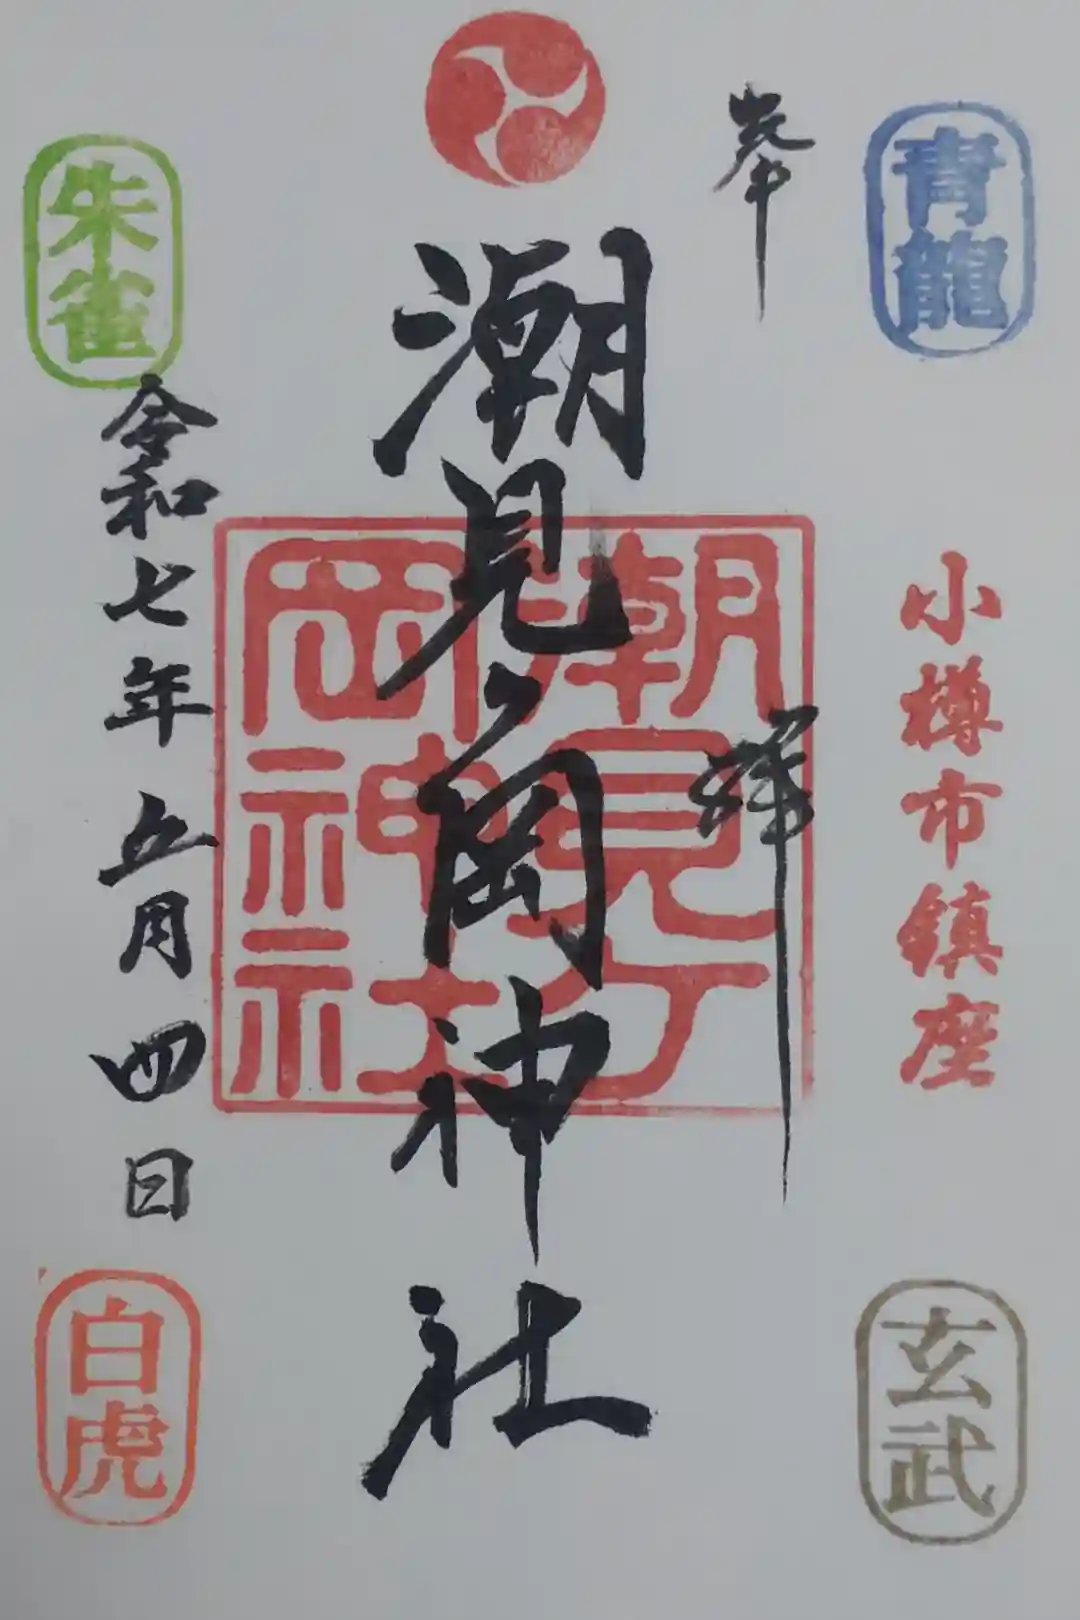 青龍
奉拝
小樽市鎮座
玄武
潮見ヶ岡神社
潮見ケ
岡神社
朱雀
令和七年五月四日
白虎